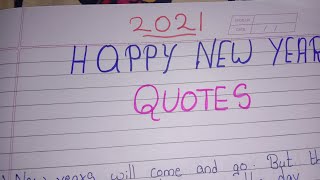 2021
HAPPY NEW YEAR
QUOTES
New years will come and go. But th
the day